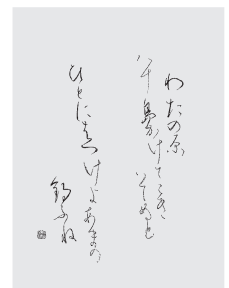 わたの原
八十島かけてこき
いてぬと
ひとには つけよあまの
釣ふね